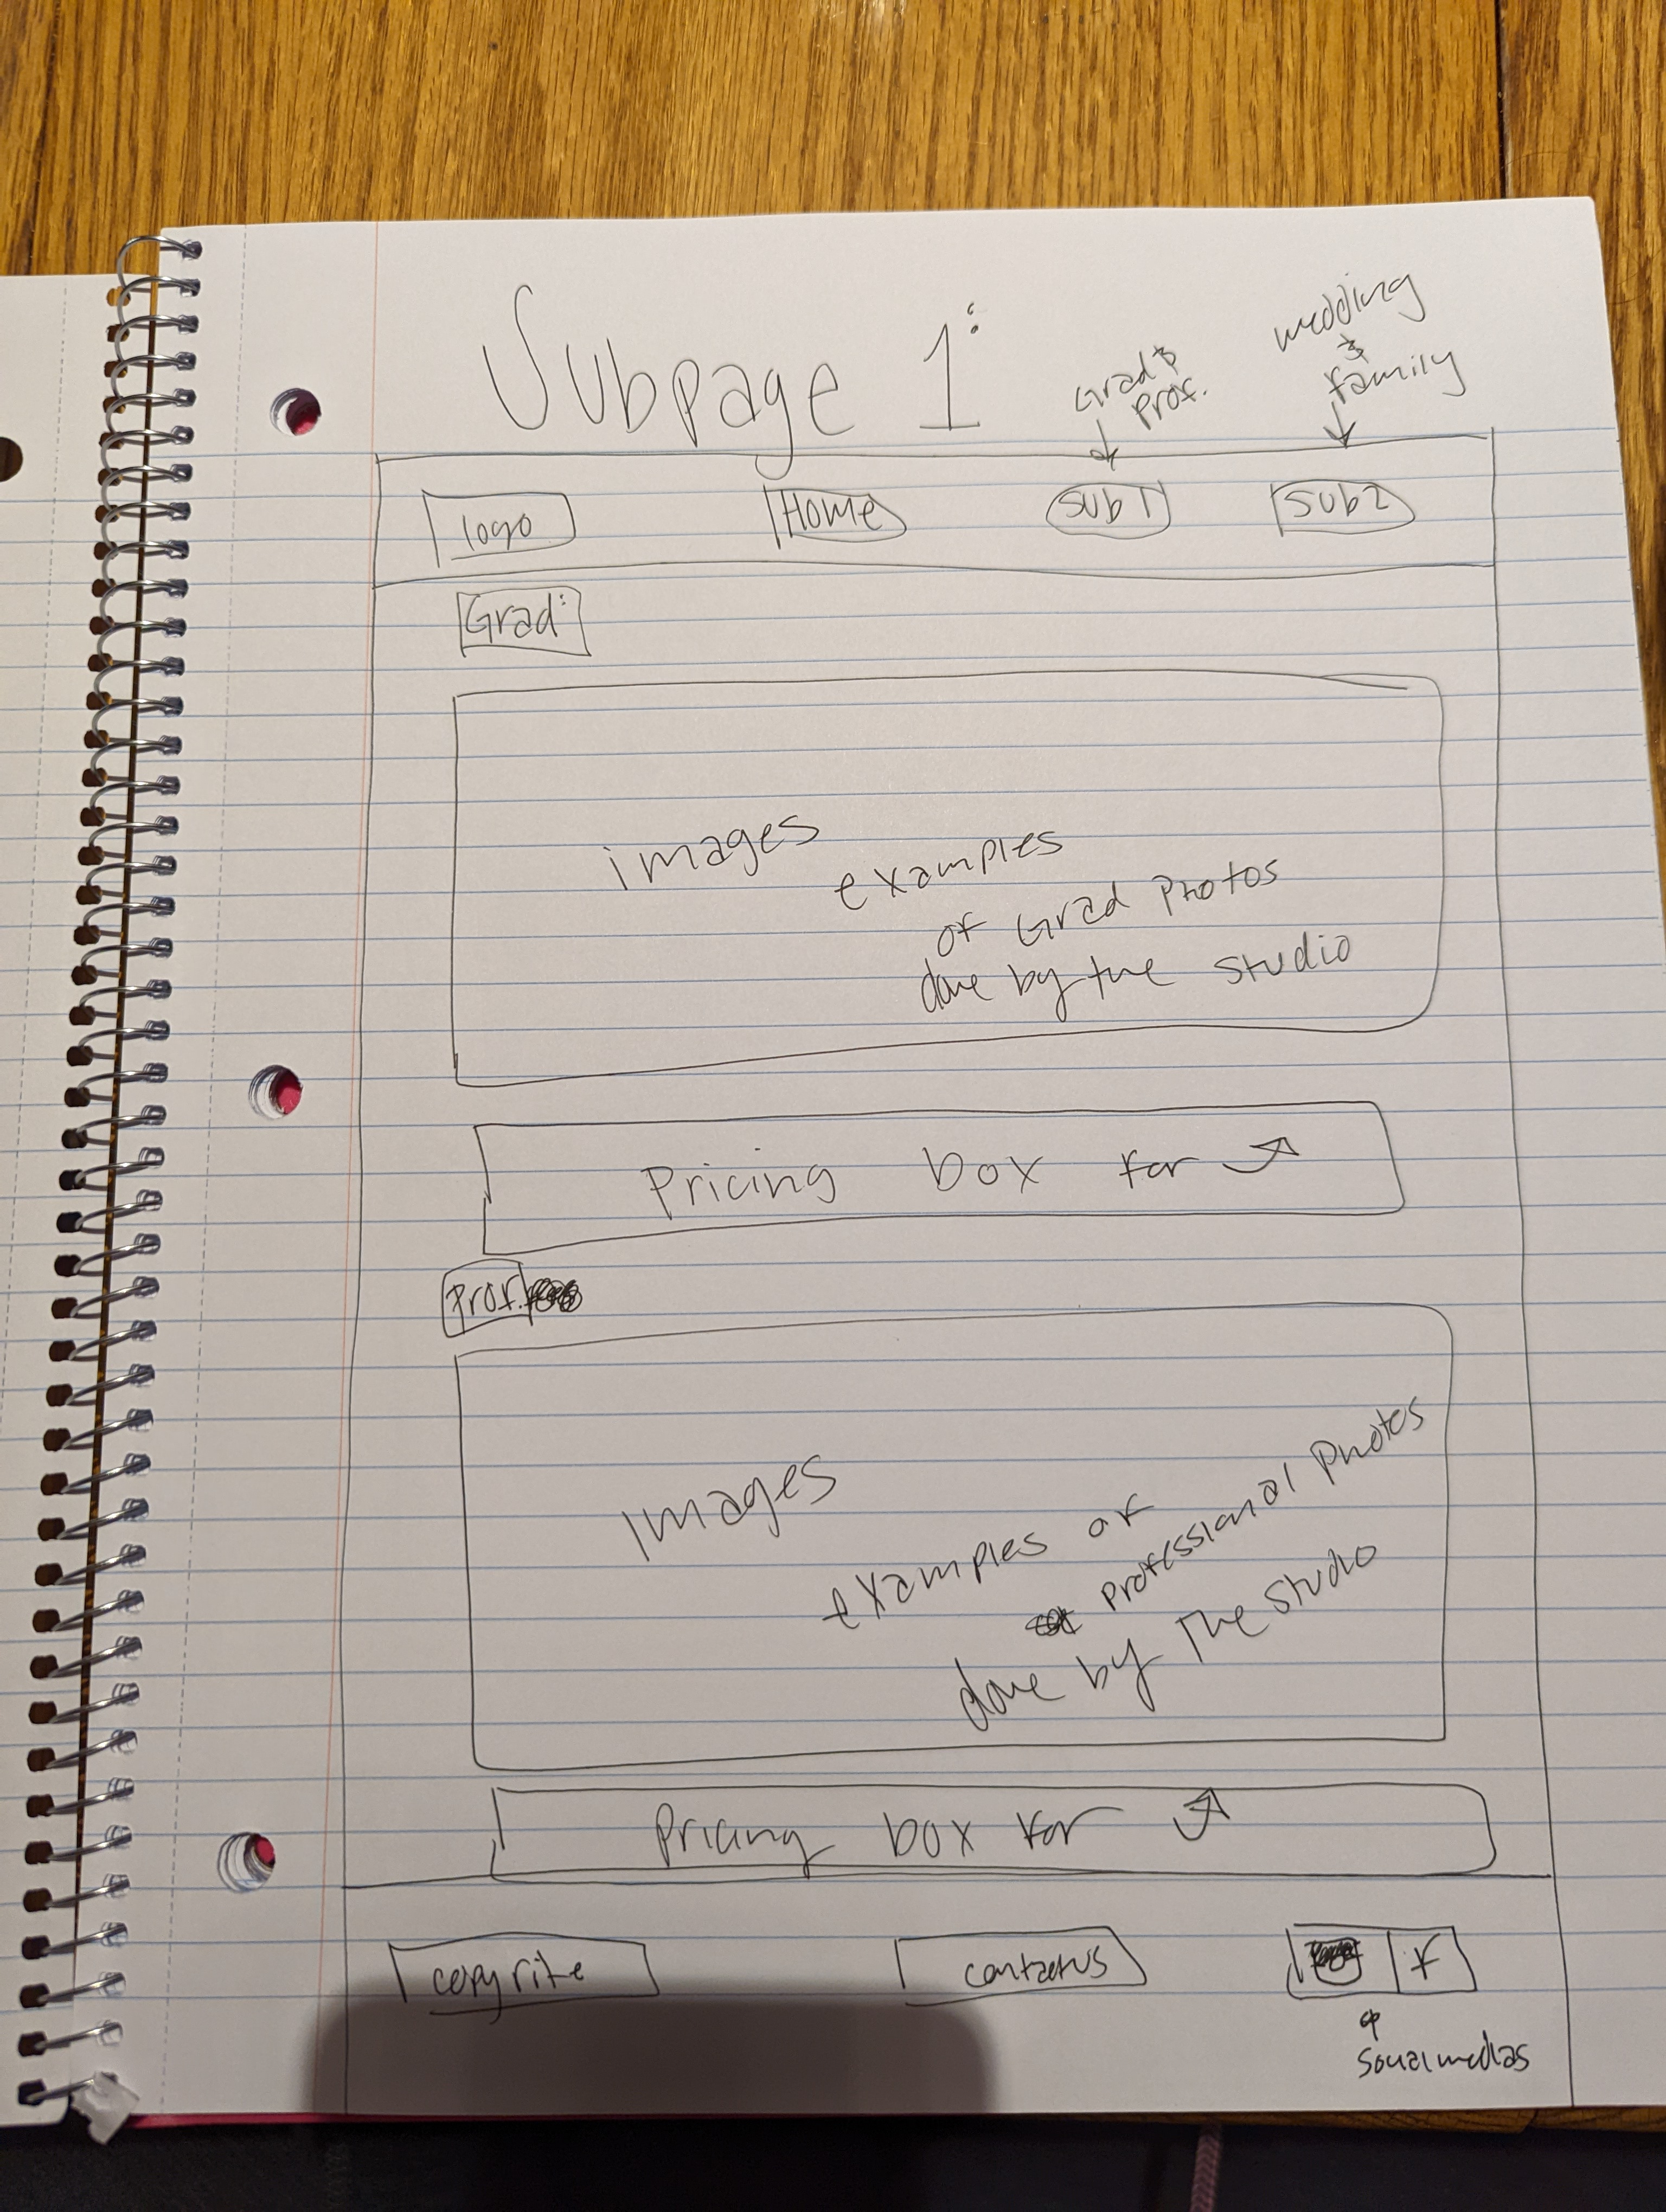 Subpage 1:
Grad &
Prof.
wedding
&
family
logo
Home
Sub1
Sub2
Grad:
images
examples
of Grad Photos
done by the studio
Pricing box for
Prof.
Images
examples of
Professional Photos
done by The studio
Pricing box for
copyrite
contact us
f
Social medias